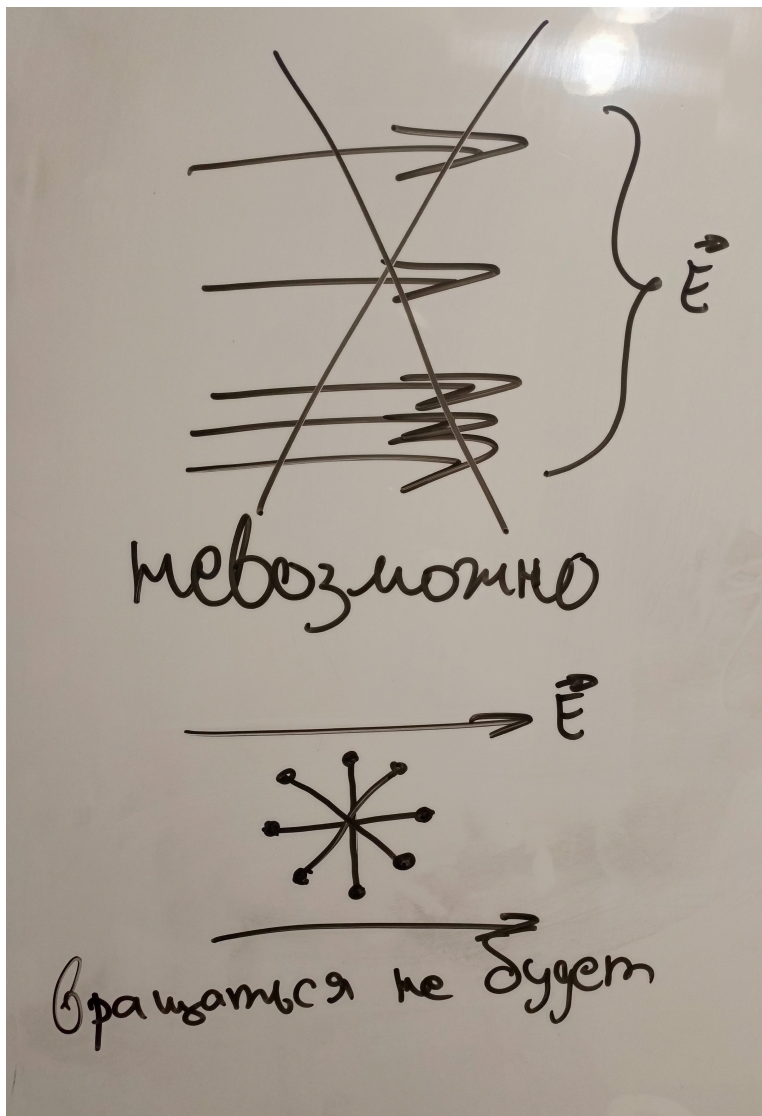 E⃗
невозможно
E⃗
вращаться не будет